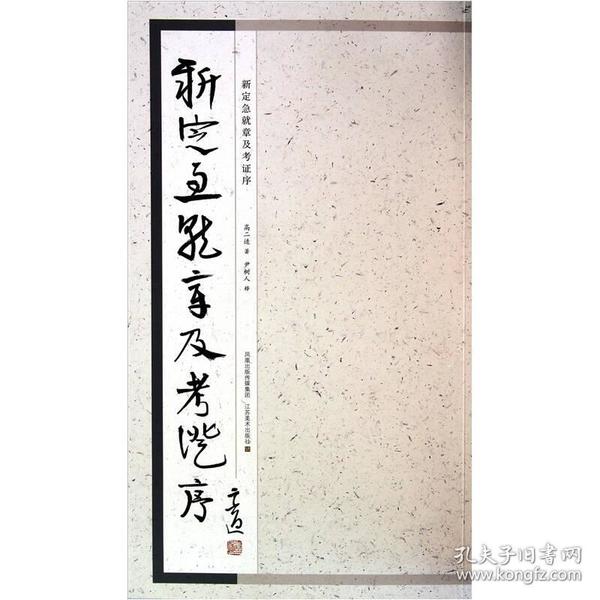 新定急就章及考证序
新定急就章及考证序
高二适 著 尹树人 释
凤凰出版传媒集团 江苏美术出版社
二适
孔夫子旧书网
www.kongfz.com